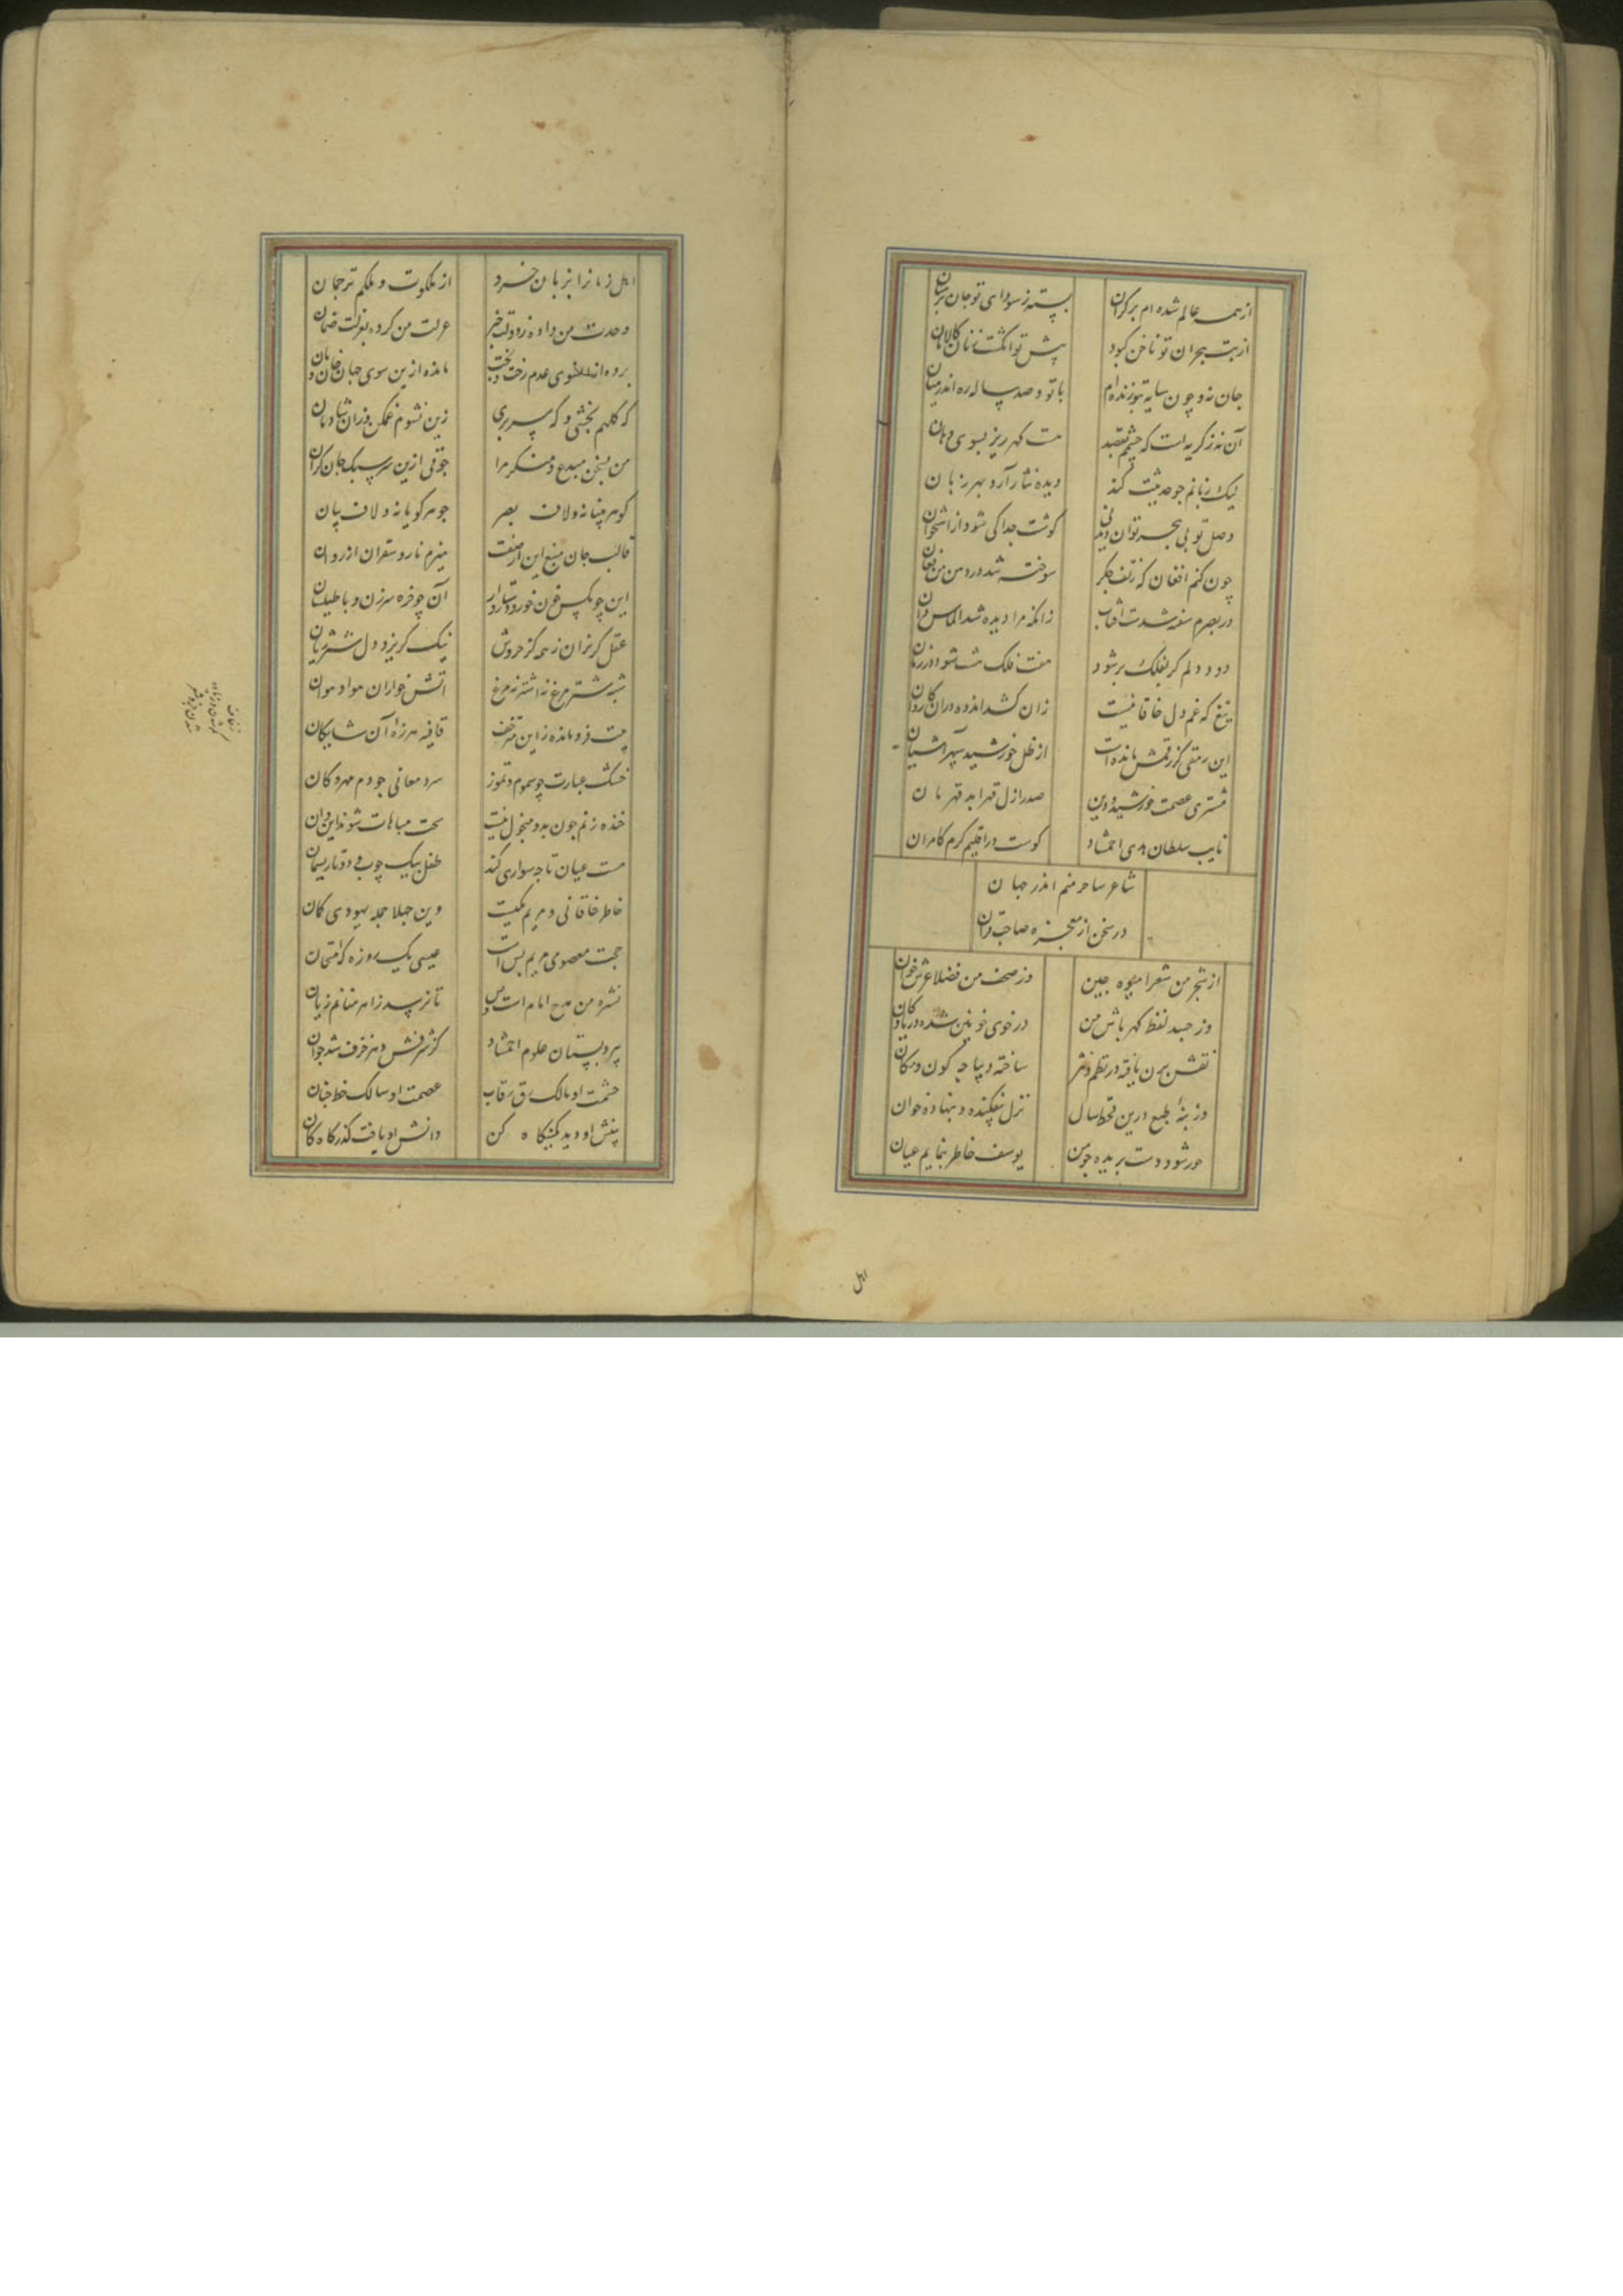 از همه عالم شده ام بر کران بسته ز سودای تو جان بر میان
از تب هجران تو ناخن کبود پیش تو انکشت زنان کالامان
جان نه و چون سایه بتو زنده ام با تو و صد ساله ره اندر میان
آن نه ز کریه است که چشمم بقصد هست کهر ریز بسوی دهان
لیک زبانم جو حدیثت کند دیده نثار آرد بهر زبان
وصل تو بی هجر توان دید نی کوشت جدا کی شود از استخوان
چون کنم افغان که ز تف جکر سوخته شد در دهن من فغان
در بصرم سفته شدت آفتاب زانکه مرا دیده شد الماس دان
دود دلم کر بفلک بر شود هفت فلک هشت شود در زمان
تیغ که غم دل خاقانیست زان کشد اندوه دران کاروان
این رمقی کز رقمش مانده است از ظل خورشید سپهر آشیان
مشتری عصمت خورشید دین صدر ازل قهر ابد قهرمان
نایب سلطان هدی احمشاد کوست در اقلیم کرم کامران
شاعر ساحر منم اندر جهان
در سخن از معجزه صاحب قران
از شجر من شعرا میوه چین وز صحف من فضلا عشر خوان
وز حسد لفظ کهر باش من در خوی خونین شده دریا و کان
نقش بمن یافته در نظم و نثر ساخته دیباچه کون و مکان
وز بنهٔ طبع درین قحط سال نزل بیفکنده و بنهاده خوان
حور شود دست بریده چو من یوسف خاطر بنمایم عیان
اهل
اهل زمانرا بزبان خرد از ملکوت و ملکم ترجمان
وحدت من داده ز دولت خبر عزلت من کرده بعزلت ضمان
برده ازانسوی عدم رخت و بخت مانده ازین سوی جهان خان و مان
که کلهم بخشی و که سر بری زین نشوم غمکن و زان شادمان
من بسخن مبدع و منکر مرا جوقی ازین سر سبک جان کران
کوهر بینا نه ولاف بصر جوهر کویا نه ولاف بیان
قالب جان منبع این از صفت هیزم نار و سقران از روان
این چو مکس خون خور و دستار دار آن چو خره سرزن و با طیلسان
عقل کریزان ز همه کز خروش نیک کریزد دل شیر ژیان
شبه شترمرغ نه اشتر نه مرغ آتش خواران هوا و هوان
هست فرومانده ز این مختصر قافیه هرزهٔ آن شایکان
خشک عبارت چو سموم و تموز سرد معانی چو دم مهرکان
خنده زنم چون بدو منحول نیست سخت مباهات شوند این و آن
هست عیان تا چه سواری کند طفل بیک چوب و دو تا ریسمان
خاطر خاقانی و مریم یکیست وین جهلا جمله یهودی کمان
حجت معصومی مریم بس است عیسی یک روزه که امتحان
نشره من مدح امام است و بس تا نرسد زاهرمنانم زیان
پیر دبستان علوم احمشاد کز شرفش دهر خرف شد جوان
حشمت او مالک رق رقاب عصمت او سالک خط جنان
بینش او دید کمینکاه کن دانش او یافت کذرکاه کان